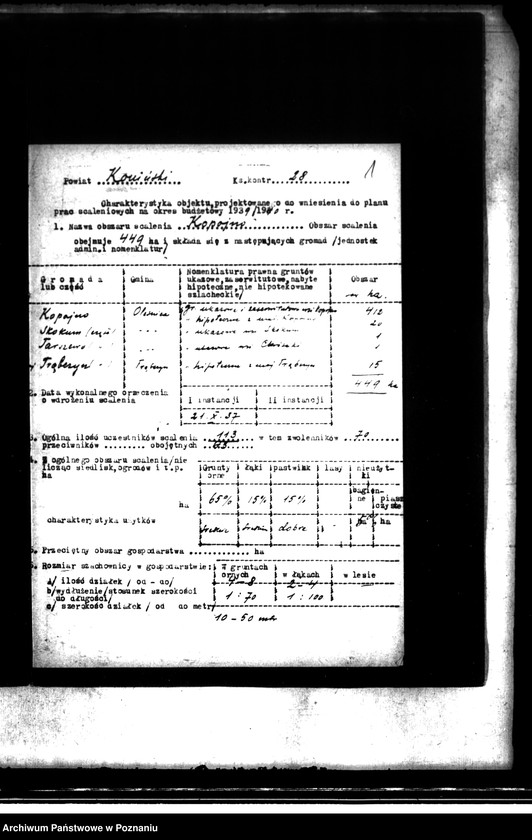 1
Powiat Koniński Ks.kontr. 28
Charakterystyka objektu, projektowanego do wniesienia do planu
prac scaleniowych na okres budżetowy 1939/1940 r.
1. Nazwa obszaru scalenia Kopojno Obszar scalenia
obejmuje 449 ha i składa się z następujących gromad /jednostek
admin. i nomenklatur/
Gromada lub część Gmina Nomenklatura prawna gruntów ukazowe, zaserwitutowe, nabyte hipoteczne, nie hipotekowane szlacheckie/ Obszar w ha.
Kopojno 412
20
Skokum 1
1
Trąbczyn Trąbczyn - hipoteczne z maj Trąbczyn 15
449 ha
2. Data wykonalnego orzeczenia
o wdrożeniu scalenia I instancji II instancji
21.X.37
3. Ogólna ilość uczestników scalenia 113 w tem zwolenników 70
przeciwników obojętnych
4. Z ogólnego obszaru scalenia/nie
licząc siedlisk, ogrodów i t.p.
ha
Grunty orne łąki pastwiska lasy nieużytki
bagienne piaszczyste
ha 65% 15% 15% ha ha
charakterystyka użytków średnie średnie dobre
5. Przeciętny obszar gospodarstwa ha
6. Rozmiar szachownicy w gospodarstwie: w gruntach ornych w łąkach w lesie
a/ ilość działek / od - do/ 7-8 2-4
b/ wydłużenie/stosunek szerokości
do długości/ 1:70 1:100
c/ szerokość działek / od do metr/
10-50 mtr
Archiwum Państwowe w Poznaniu